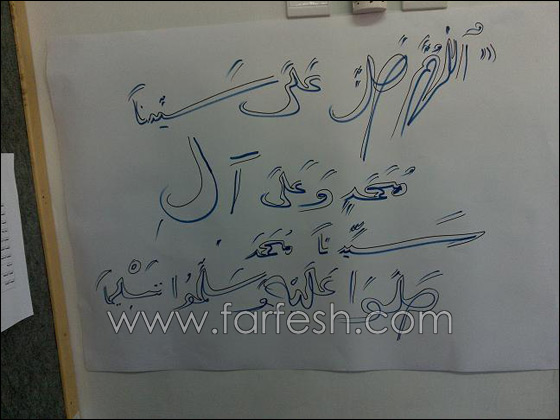 اللَّهُمَّ صَلِّ عَلَى سَيِّدِنَا
مُحَمَّدٍ وَعَلَى آلِ
سَيِّدِنَا مُحَمَّد
صَلُّوا عَلَيْهِ وَسَلِّمُوا تَسْلِيمًا
www.farfesh.com